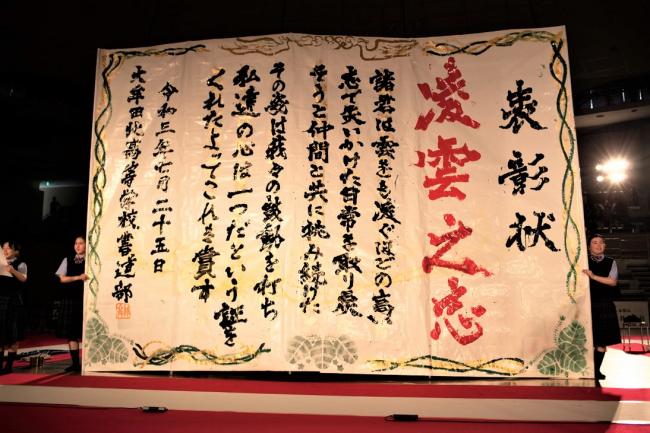 表彰状
凌雲之志
諸君は雲をも凌ぐほどの高い
志で失いかけた日常を取り戻
そうと仲間と共に挑み続けた
その姿は我々の鼓動を打ち
私達の心は一つだという証を
くれたよってこれを賞す
令和三年七月二十五日
大牟田北高等学校書道部